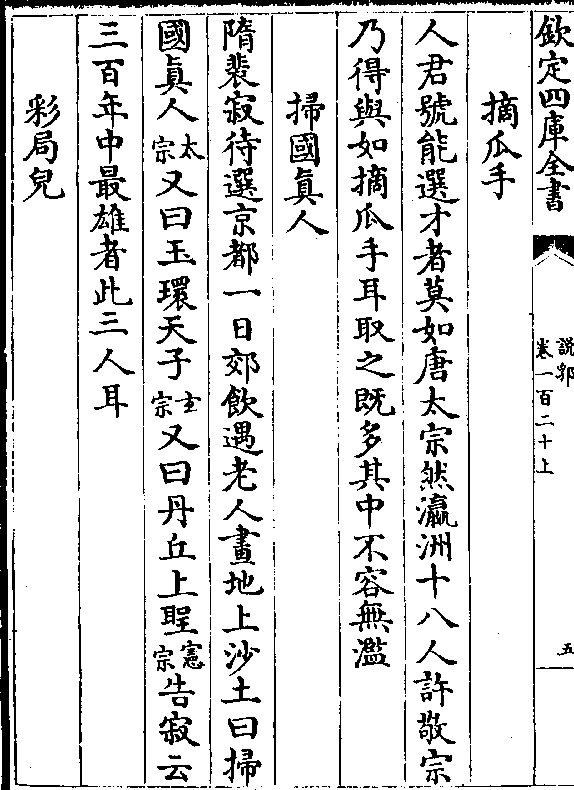 欽定四庫全書
說郛
卷一百二十上
五
摘瓜手
人君號能選才者莫如唐太宗然瀛洲十八人許敬宗
乃得與如摘瓜手耳取之既多其中不容無濫
掃國真人
隋裴寂待選京都一日郊飲遇老人畫地上沙土曰掃
國真人太宗又曰玉環天子玄宗又曰丹丘上聖憲宗告寂云
三百年中最雄者此三人耳
彩局兒